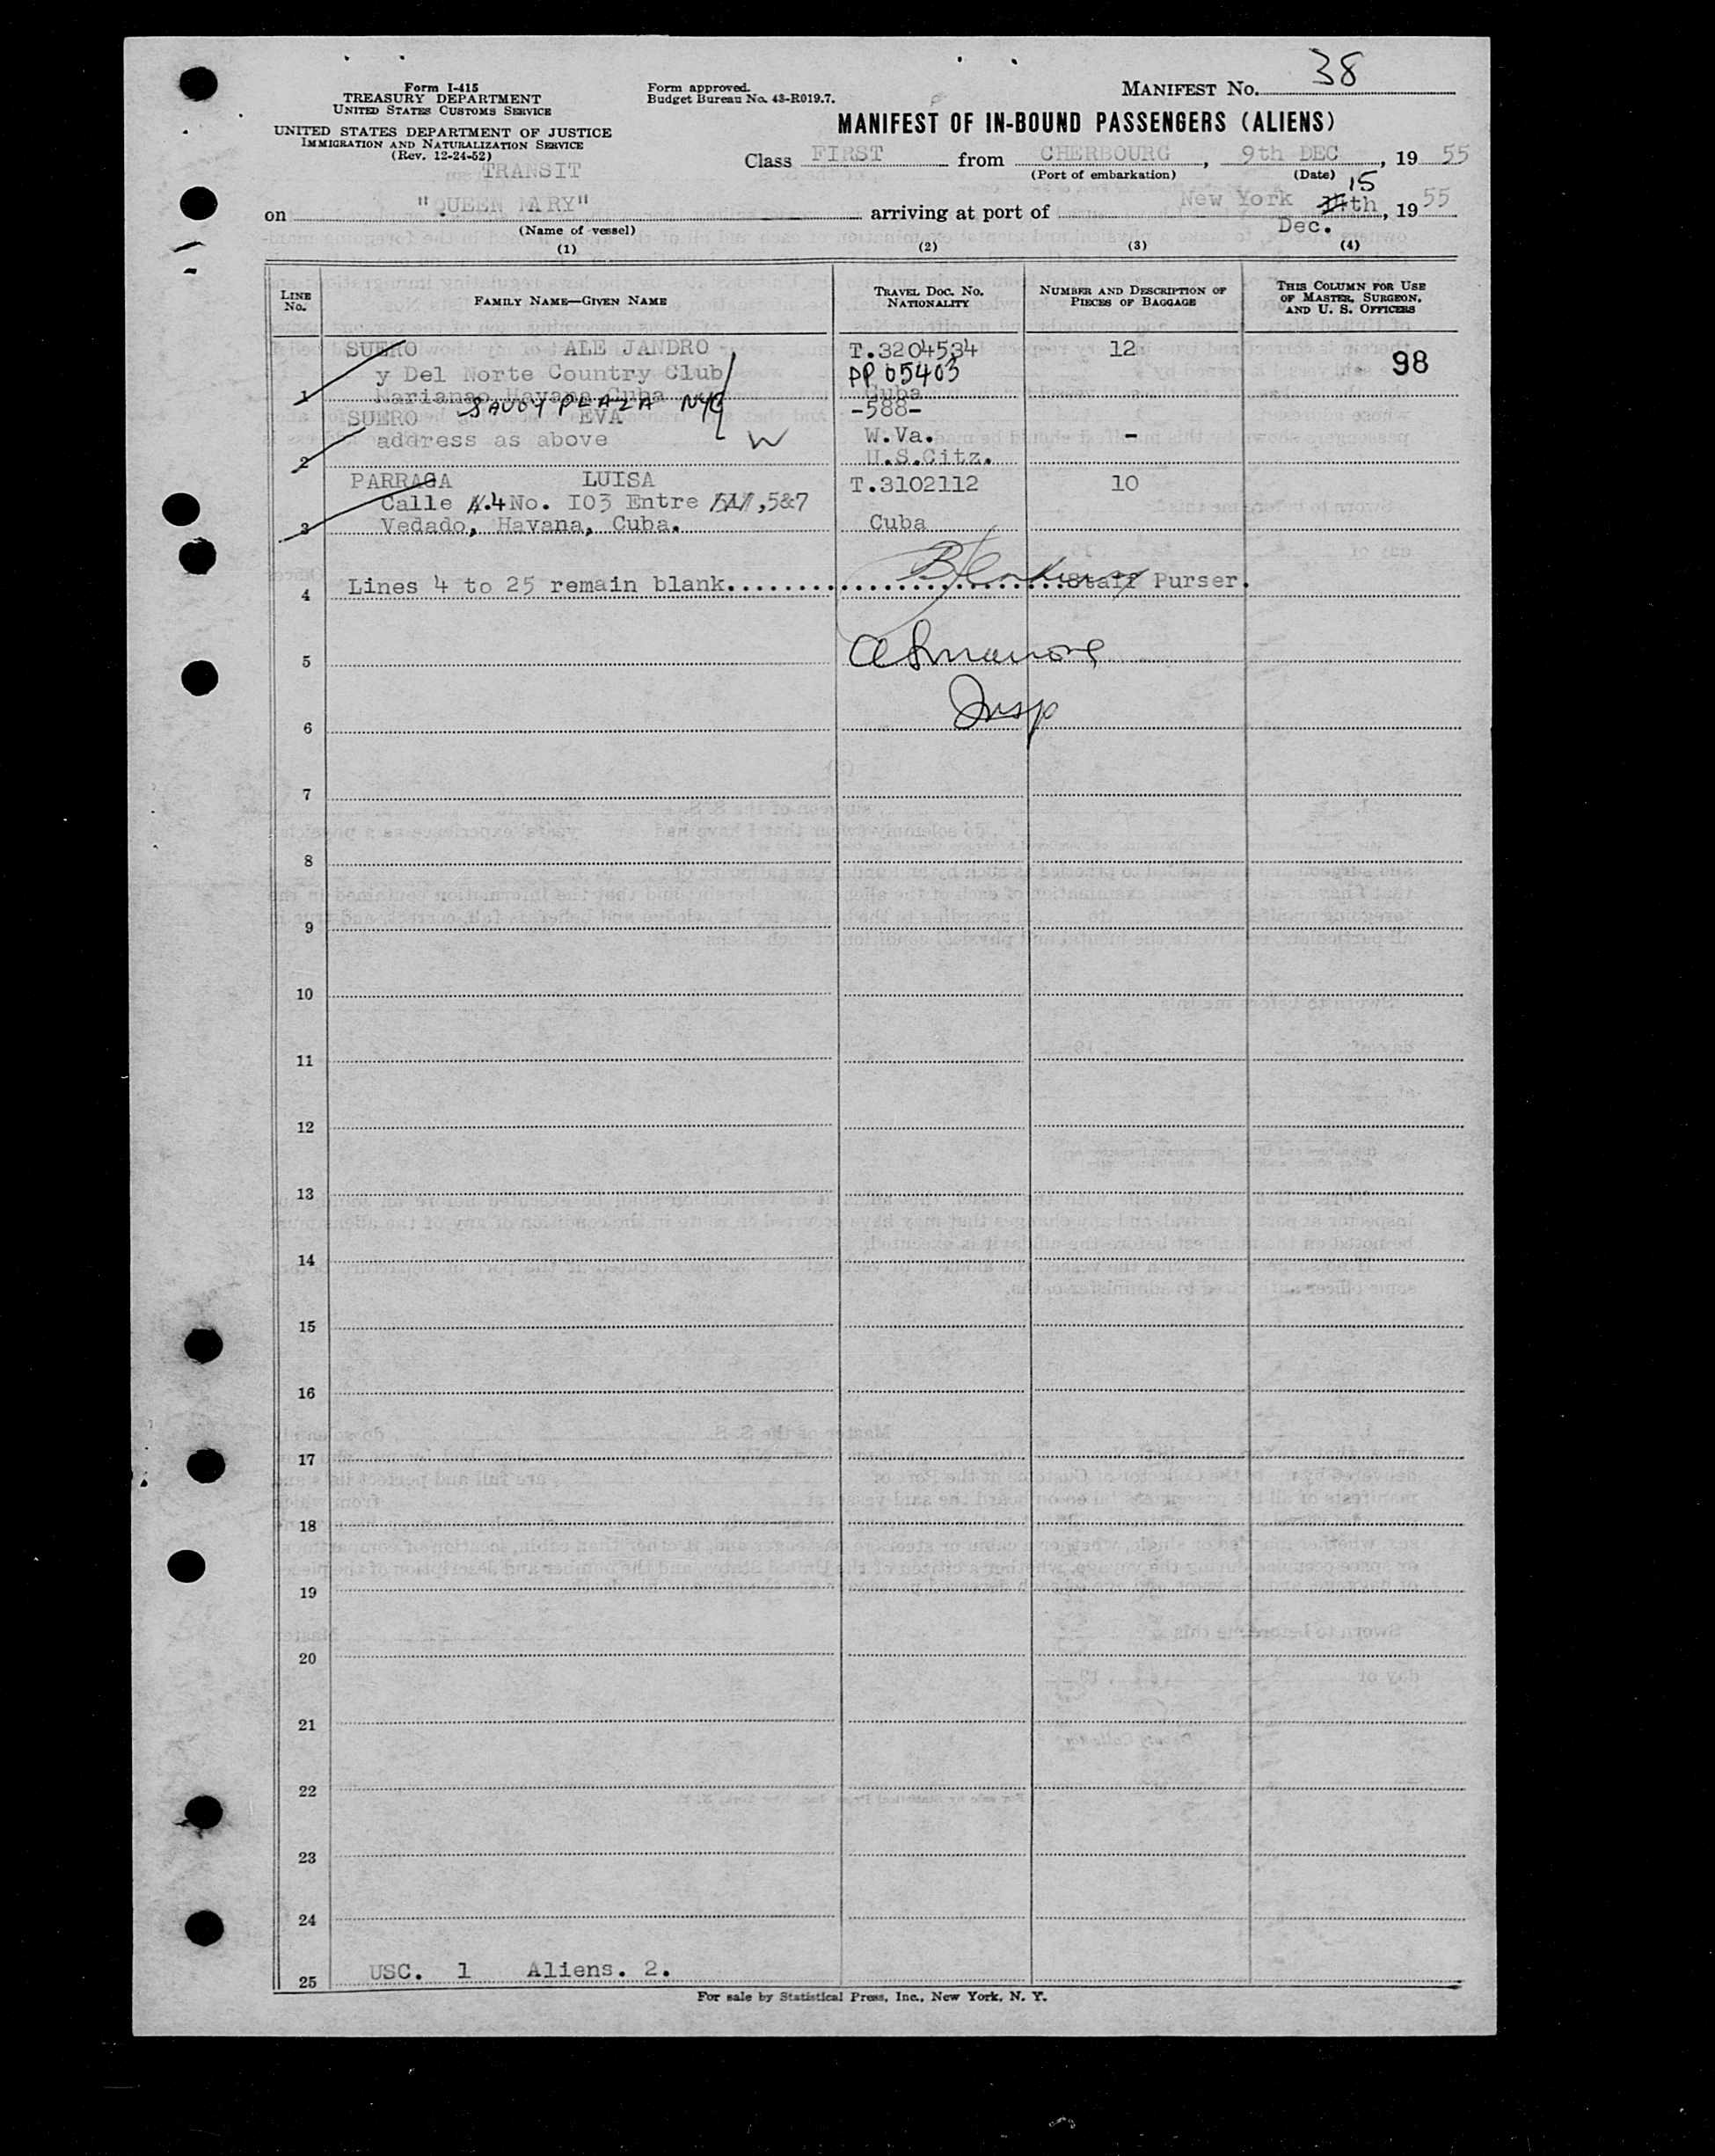 Form I-415
TREASURY DEPARTMENT
UNITED STATES CUSTOMS SERVICE
UNITED STATES DEPARTMENT OF JUSTICE
IMMIGRATION AND NATURALIZATION SERVICE
(Rev. 12-24-52)
TRANSIT
Form approved.
Budget Bureau No. 43-R019.7.
MANIFEST No. 38
MANIFEST OF IN-BOUND PASSENGERS (ALIENS)
Class FIRST from CHERBOURG, 9th DEC, 19 55
(Port of embarkation) (Date)
15
on "QUEEN MARY" arriving at port of New York 14th, 19 55
Dec.
(Name of vessel)
(1) (2) (3) (4)
LINE No. FAMILY NAME—GIVEN NAME TRAVEL DOC. NO. NATIONALITY NUMBER AND DESCRIPTION OF PIECES OF BAGGAGE THIS COLUMN FOR USE OF MASTER, SURGEON, AND U. S. OFFICERS
SUERO ALE JANDRO T.3204534 12 98
y Del Norte Country Club PP 05403
1 Marianao Havana Cuba Cuba
SAVOY PLAZA NYC
SUERO EVA -588-
address as above W W.Va. -
2 U.S.Citz.
PARRAGA LUISA T.3102112 10
Calle 4 No. I03 Entre ,5&7
3 Vedado, Havana, Cuba. Cuba
4 Lines 4 to 25 remain blank. Staff Purser.
5
Insp
6
7
8
9
10
11
12
13
14
15
16
17
18
19
20
21
22
23
24
25 USC. 1 Aliens. 2.
For sale by Statistical Press, Inc., New York, N. Y.